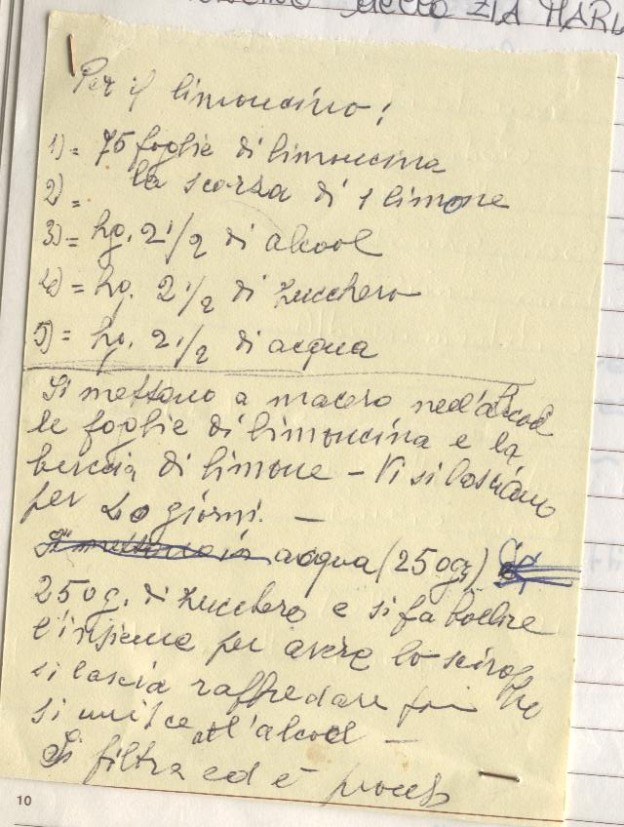 DELLO ZIA MARI
Per il limoncino:
1) = 75 foglie di limoncina
2) = la scorza di 1 limone
3) = hg. 2 1/2 di alcool
4) = hg. 2 1/2 di zucchero
5) = hg. 2 1/2 di acqua
Si mettono a macero nell'alcool
le foglie di limoncina e la
buccia di limone - Vi si lasciano
per 20 giorni. -
acqua (250 g)
250 g. di zucchero e si fa bollire
l'insieme per avere lo sciroppo
si lascia raffredare poi
si unisce all'alcool -
Si filtra ed è pronto
10